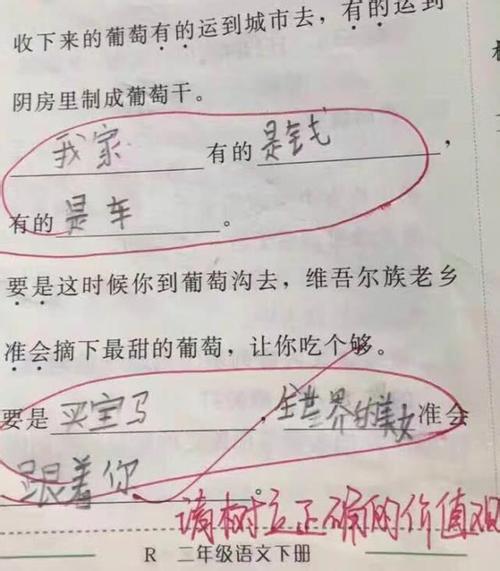 收下来的葡萄有的运到城市去，有的运到
阴房里制成葡萄干。
我家有的是钱，
有的是车。
要是这时候你到葡萄沟去，维吾尔族老乡
准会摘下最甜的葡萄，让你吃个够。
要是买宝马，全世界的美女准会
跟着你。
请树立正确的价值观
R 二年级语文下册